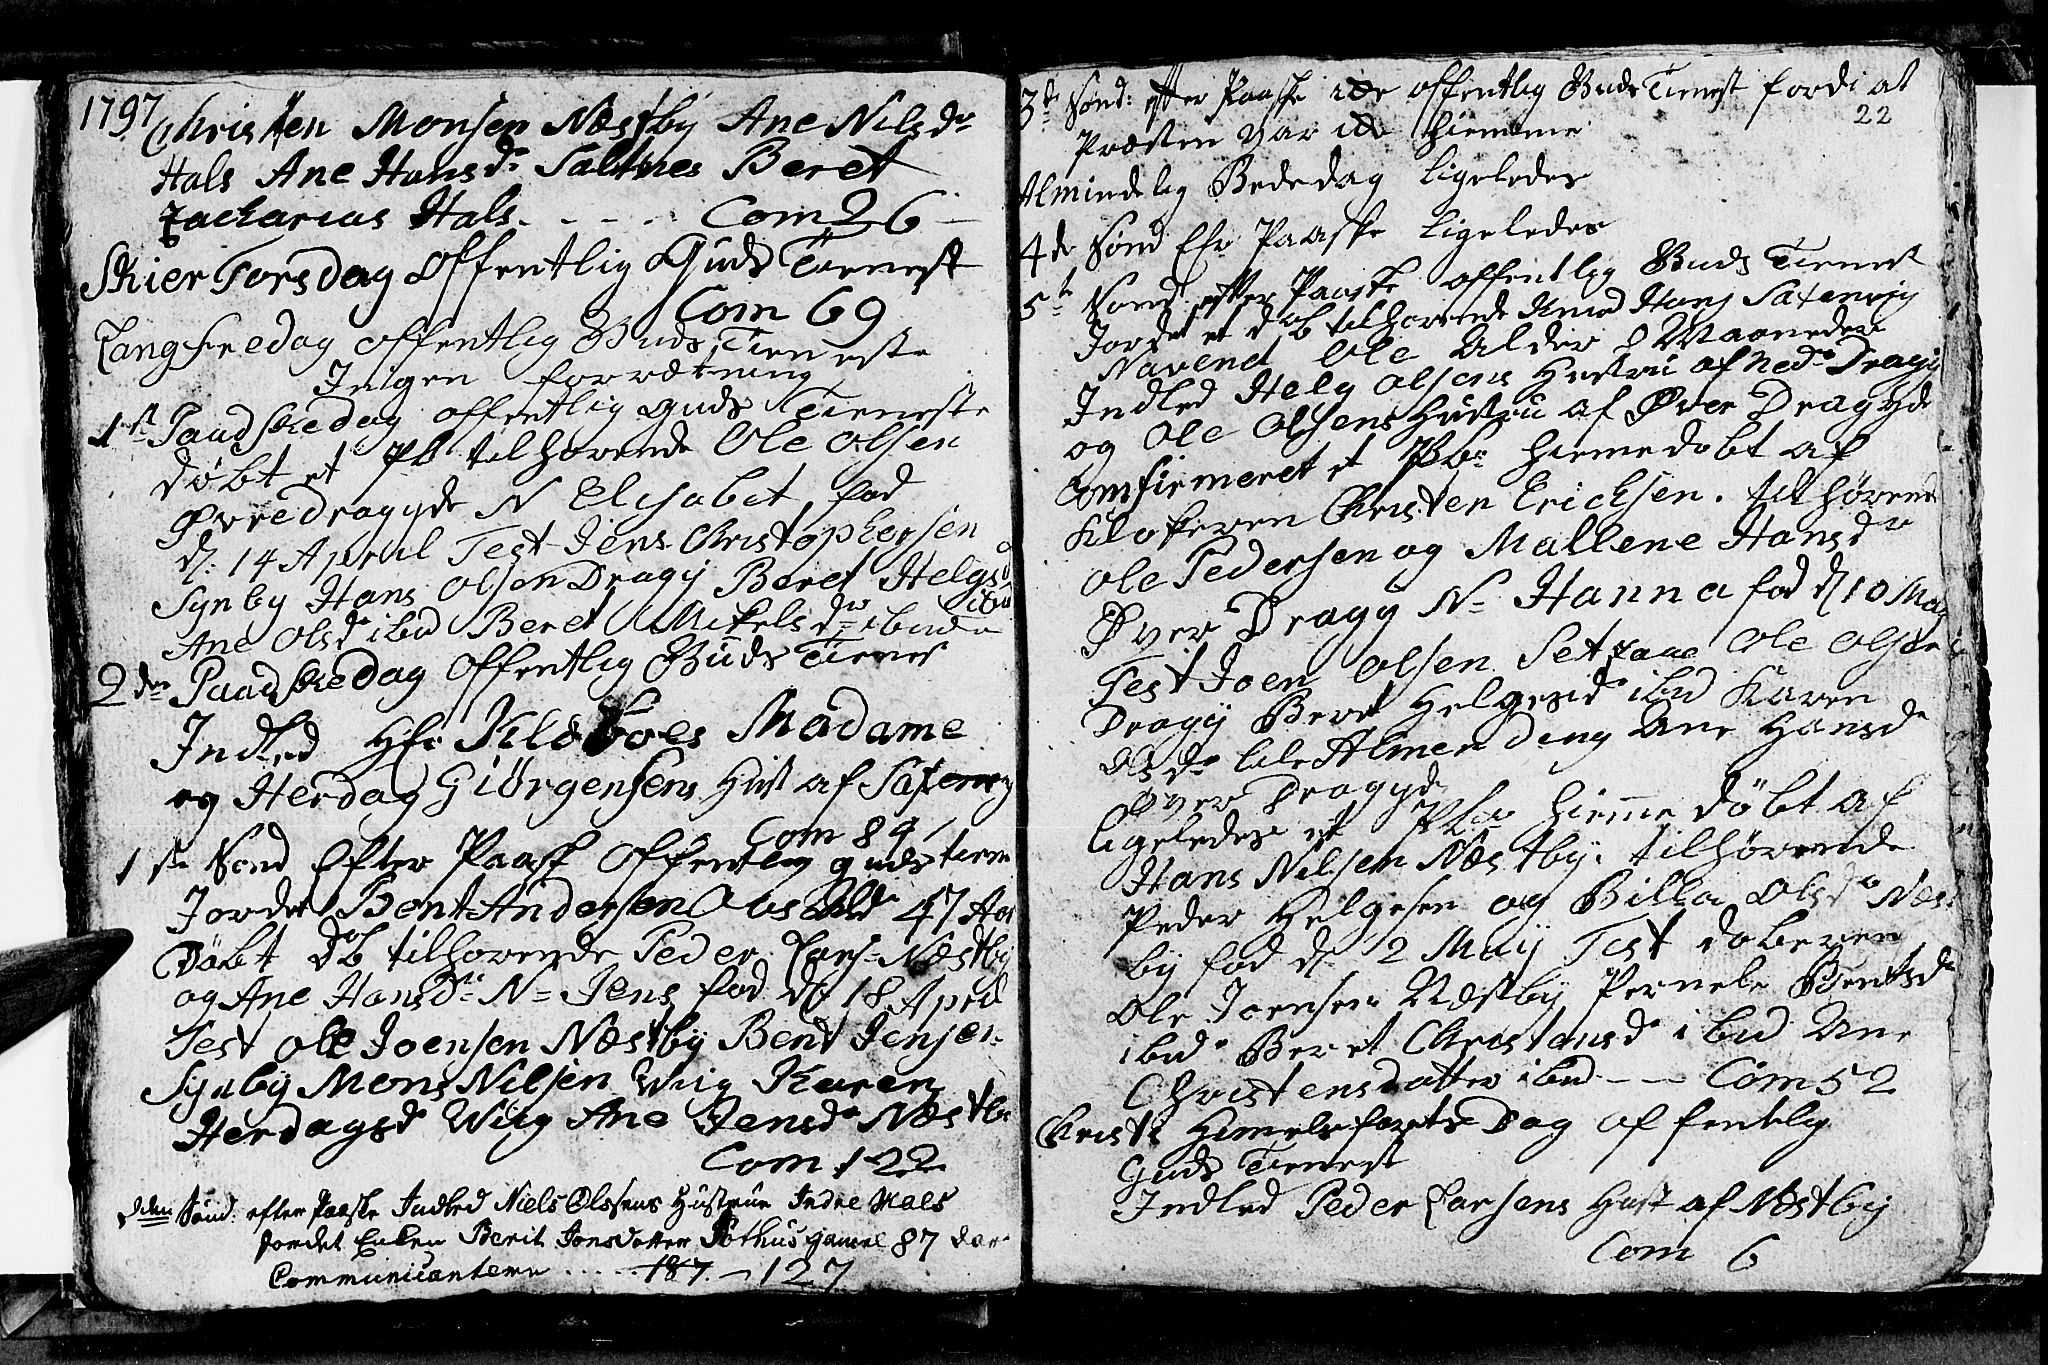 1797
Christen Monsen Næstby Ane Nilsdr
Hals Ane Hansdr Saltnes Beret
Zacharias Hals. - - - . Com 26 -
Skier Torsdag offentlig Guds Tienest
Com 69
Langfredag offentlig Guds Tieneste
Ingen forrætning
1st Paaskedag offentlig Guds Tieneste
døbt et Pb tilhørende Ole Olsen
Øvredragyde N Elisabet fød
d. 14 April Test Jens Christophersen
Synby Hans Olsen Dragy Beret Helgsd
ibid
Ane Olsdr ibid Beret Mikelsdr ibid
2den Paaskedag offentlig Guds Tienes
Indled Hr Kløboes Madame
og Herdag Giörgensens Hust af Saxenvig
Com 89
1ste Sønd Efter Paask offentlig gudstiene
Jordet Bent Andersen Alder 47 Aar
Døbt db tilhørende Peder Lars Næstby
og Ane Hansdr N= Jens fød d 18 April
Test Ole Joensen Næstby Bent Jensen
Synby Mons Nilsen Wiig Karen
Herdagsdr Wiig Ane Jensdr Næstby
Com 122
2den Sønd: efter Paaske Indled Niels Olssens Hustrue Indre Hals
Jordet Enken Berit Jonsdotter gamel 87
Communicantere . . . . 187. - 127
3de Sønd: efter Paaske icke offentlig Guds Tienest fordi at
22
Præsten var icke hiemme
Almindelig Bededag ligeledes
4de Sønd Efr Paaske ligeledes
5te Sønd efter Paaske offentlig Guds Tienest
Jordet et db tilhørende Knud Hans Saxenvig
Navend Ole Alder 8 Maaneder
Indled Helg Olsens Hustrue af Nedr Dragy
og Ole Olsens Hustru af Øver Dragyde
Comfirmeret et Pb hiemedøbt af
Klokeren Christen Ericksen. tilhørende
Ole Pedersen og Mallene Hansdr
Øver Dragy N= Hanna fød d 10 May
Test Joen Olsen Setsaae Ole Olsen
Dragy Beret Helgesdr ibid Karen
Olsdr lile Almending Ane Hansd
Øver Dragyde
ligeledes et Pb hieme døbt af
Hans Nilsen Næstby. tilhørende
Peder Helgesen og Billa Olsdr Næst
by fød d. 2 Maij Test døberen
Ole Joensen Næstby Pernele Bentsdr
ibid Beret Christensdr ibid Ane
Christensdatter ibid - - Com 52
Christi Himelsfartsdag offentlig
Guds Tienest
Indled Peder Larsens Hust af Næstby
Com 6